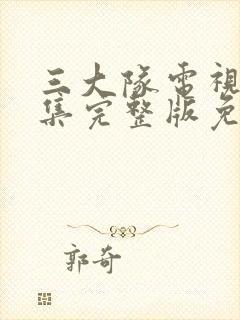 三大隊電視
集完整版免
郭奇